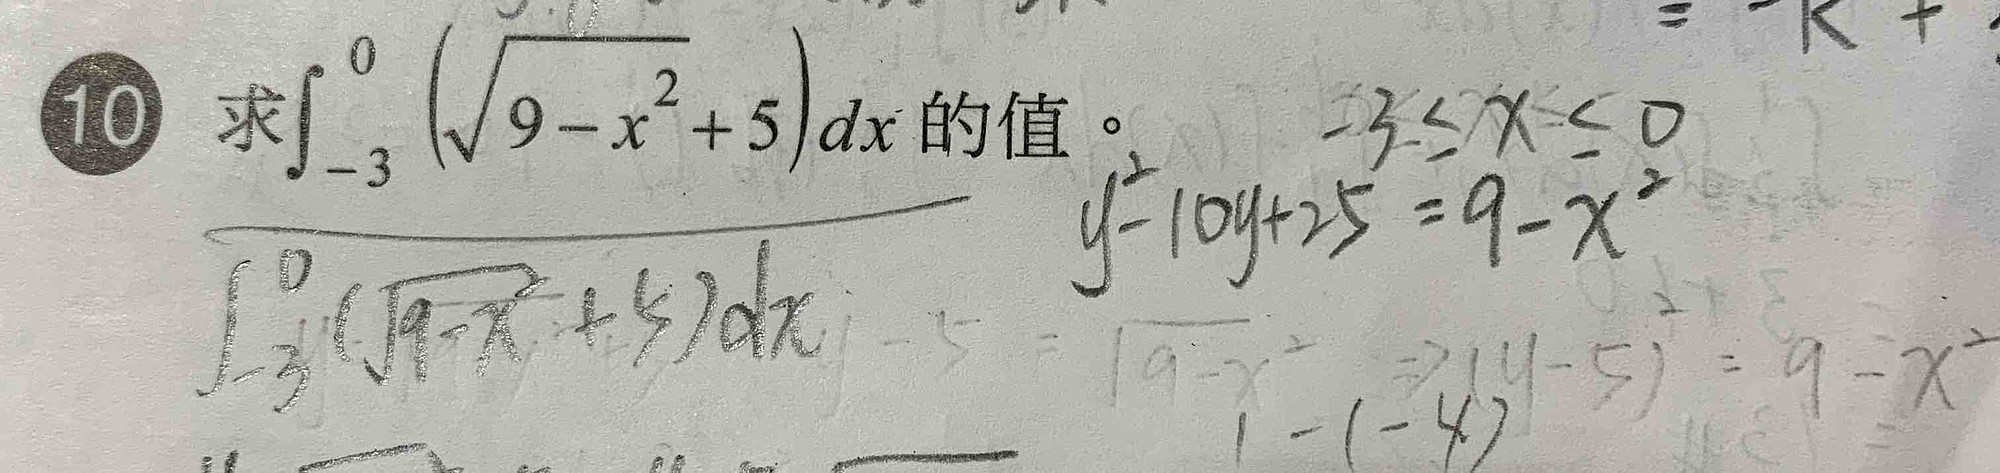 = -k +
10 求∫_{-3}^{0} (√(9-x²) + 5) dx 的值。
-3 ≤ x ≤ 0
y²-10y+25 = 9-x²
∫_{-3}^{0} (√(9-x²) + 5) dx
y-5 = √(9-x²) ⇒ (y-5) = 9-x²
1-(-4)